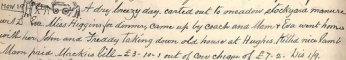 Nov 19 A dry breezy day. Carted out to meadow stockyard manure
Miss Higgins for dinner, came up by coach and Mam & Eva went home
with her. John and Freddy taking down old house at Hughes. Killed nice lamb
Mam paid Mackies bill - £3-10-1 out of Cow cheque of £7-2-